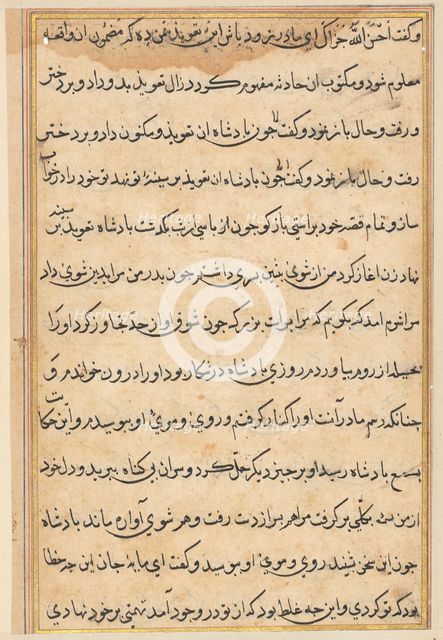 و گفت احسن الله جزاک ای مادر زود باش این تعویذ بمن ده که مضمون ان واقعه
معلوم شود و مکتوب ان حادثه مفهوم کردد زال تعویذ بدو داد و برد ختر
و رفت و حال باز نمود و گفت جون بادشاه ان تعویذ و مکنون داد و بر دختر
رفت و حال باز نمود و گفت جون بادشاه ان تعویذ بر سینۀ تو نهد تو خود را در خواب
ساز و تمام قصه خود براستی باز کو جون از شب باسی بکذشت بادشاه تعویذ بر سینه
نهاد زن اغاز کرد من از شوئ بشین بسری داشتم جون بدر من مرا بدین شوی داد
مرا شرم امد که بکویم که مرا بسری بزرکست جون شوق او از حد تجاوز کرد او را
بحیله از روم بیاوردم روزی بادشاه در شکار بود او را درون خواندم و
جنانکه رسم مادر آنست او را کنار کرفتم و روی و موی او بوسیدم و این حکایت
بسمع بادشاه رسید او بر جیز دیکر حمل کرد و سر ان بی کناه ببرید و دل خود
از من بکلی بر کرفت مرا هم بسر از دست رفت و هم شوی آواره ماند بادشاه
جون این سخن شنید روی و موی او ببوسید و گفت ای مایۀ جان این جه خطا
بود که تو کردی و این جه غلط بود که از تو در وجود آمد تهمتی بر خود نهادی
Heritage
Heritage